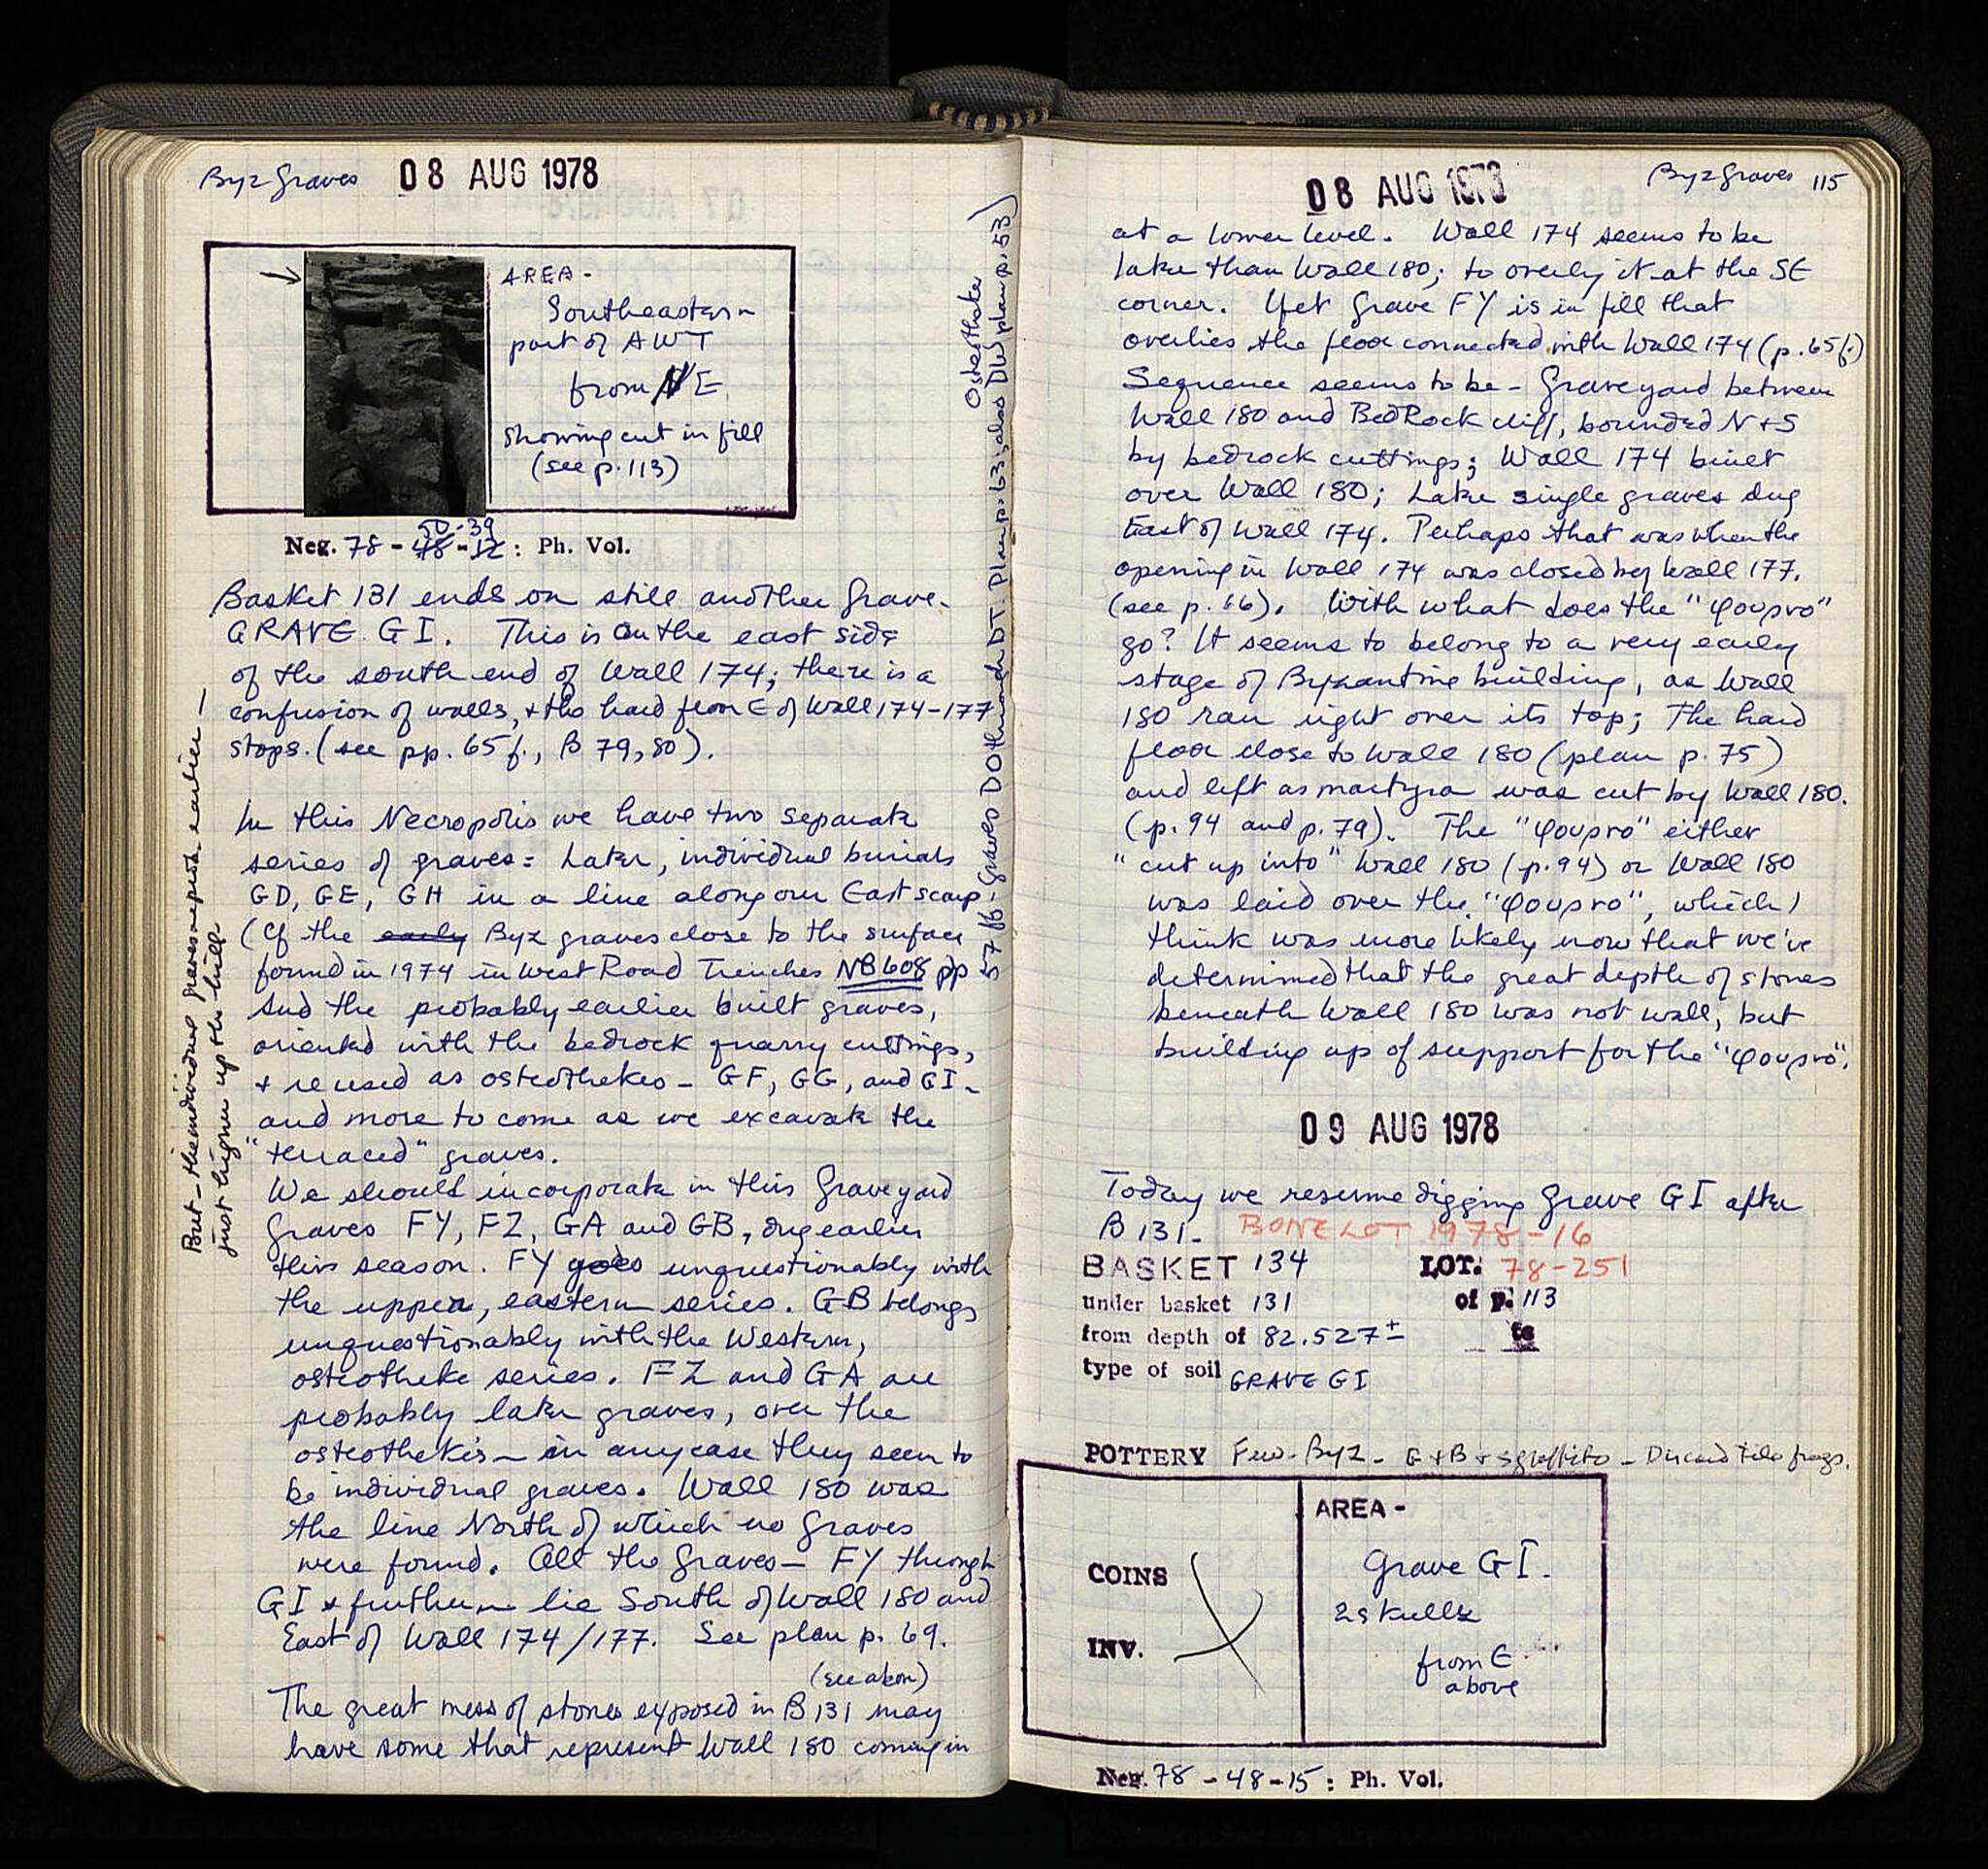 Byz Graves 08 AUG 1978
AREA -
Southeastern
part of AWT
from E
showing cut in fill
(see p. 113)
50-39
Neg. 78 - 48 - 12 : Ph. Vol.
Basket 131 ends on still another Grave-
GRAVE GI. This is on the east side
of the south end of Wall 174; there is a
confusion of walls, + the hard floor E of Wall 174-177
stops. (see pp. 65 f., B 79, 80).
In this Necropolis we have two separate
series of graves: Later, individual burials
GD, GE, GH in a line along our East scarp
(Cf the early Byz graves close to the surface
found in 1974 in West Road Trenches NB 608 pp
57 ff - Graves DO through DT. Plan p. 63; also DW plan p. 53)
Osteotheke
And the probably earlier built graves,
oriented with the bedrock quarry cuttings,
+ reused as osteothekes - GF, GG, and GI -
and more to come as we excavate the
"terraced" graves.
But - the individual graves = prob. earlier -
just higher up the hill
We should incorporate in this Graveyard
Graves FY, FZ, GA and GB, dug earlier
this season. FY goes unquestionably with
the upper, eastern series. GB belongs
unquestionably with the Western,
osteotheke series. FZ and GA are
probably later graves, over the
osteothekes - in any case they seem to
be individual graves. Wall 180 was
the line North of which no Graves
were found. All the Graves - FY through
GI + further lie South of Wall 180 and
East of Wall 174/177. See plan p. 69.
(see above)
The great mess of stones exposed in B 131 may
have some that represent Wall 180 coming in
08 AUG 1978 Byz Graves 115
at a lower level. Wall 174 seems to be
later than Wall 180; to overly it at the SE
corner. Yet Grave FY is in fill that
overlies the floor connected with Wall 174 (p. 65 f.)
Sequence seems to be - Graveyard between
Wall 180 and BedRock cliff, bounded N + S
by bedrock cuttings; Wall 174 built
over Wall 180; Later single graves dug
East of Wall 174. Perhaps that was when the
opening in Wall 174 was closed by Wall 177.
(see p. 66). With what does the "φουρνο"
go? It seems to belong to a very early
stage of Byzantine building, as Wall
180 ran right over its top; The hard
floor close to Wall 180 (plan p. 75)
and left as martyra was cut by Wall 180.
(p. 94 and p. 79). The "φουρνο" either
"cut up into" Wall 180 (p. 94) or Wall 180
was laid over the "φουρνο", which I
think was more likely now that we've
determined that the great depth of stones
beneath Wall 180 was not wall, but
building up of support for the "φουρνο".
09 AUG 1978
Today we resume digging Grave GI after
B 131. BONE LOT 1978-16
BASKET 134 LOT: 78-251
under basket 131 of p. 113
from depth of 82.527± to
type of soil GRAVE GI
POTTERY Few. Byz - G + B + sgraffito - Discard tile frags.
COINS
INV.
AREA -
Grave GI.
2 skulls
from E
above
Neg. 78 - 48 - 15 : Ph. Vol.